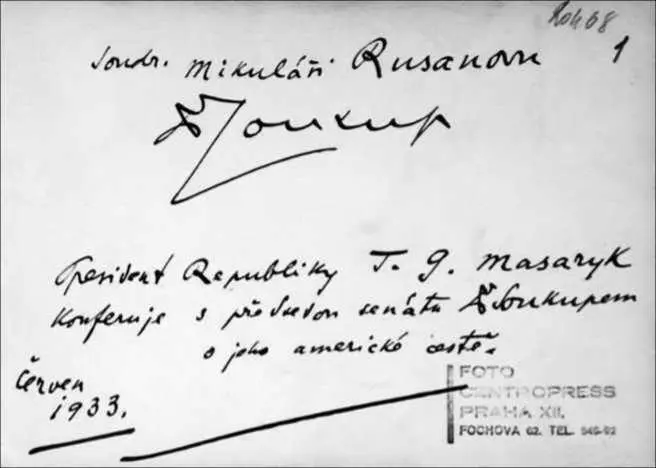 1
Soudr. Mikuláši Rusanovu
Soukup
President Republiky T. G. Masaryk
konferuje s předsedou senátu Soukupem
o jeho americké cestě.
Červen
1933.
FOTO
CENTROPRESS
PRAHA XII.
FOCHOVA 62. TEL.